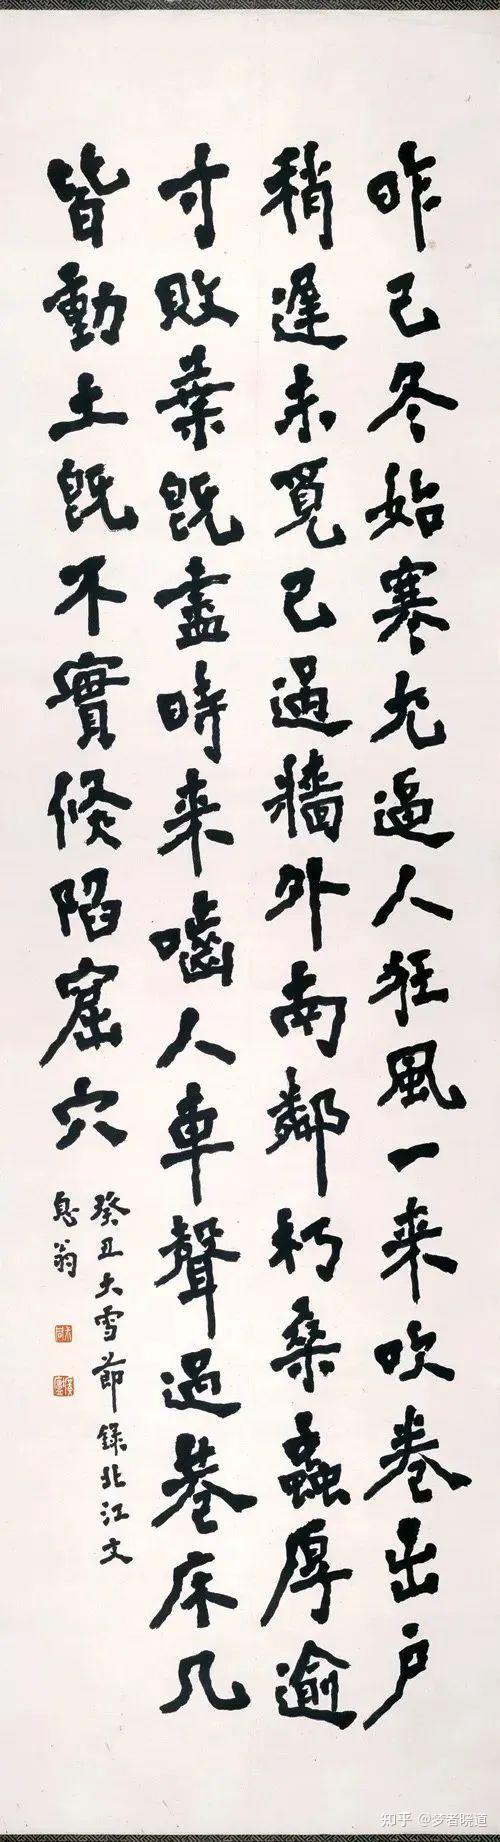 昨已冬始寒尤逼人狂風一来吹卷出户
稍遲未覓已過牆外南鄰朽桑蟲厚逾
寸敗葉既盡時来嚙人車聲過巷床几
皆動土既不實倐陷窟穴
癸丑大雪節録北江文
息翁
知乎 @梦者晓道